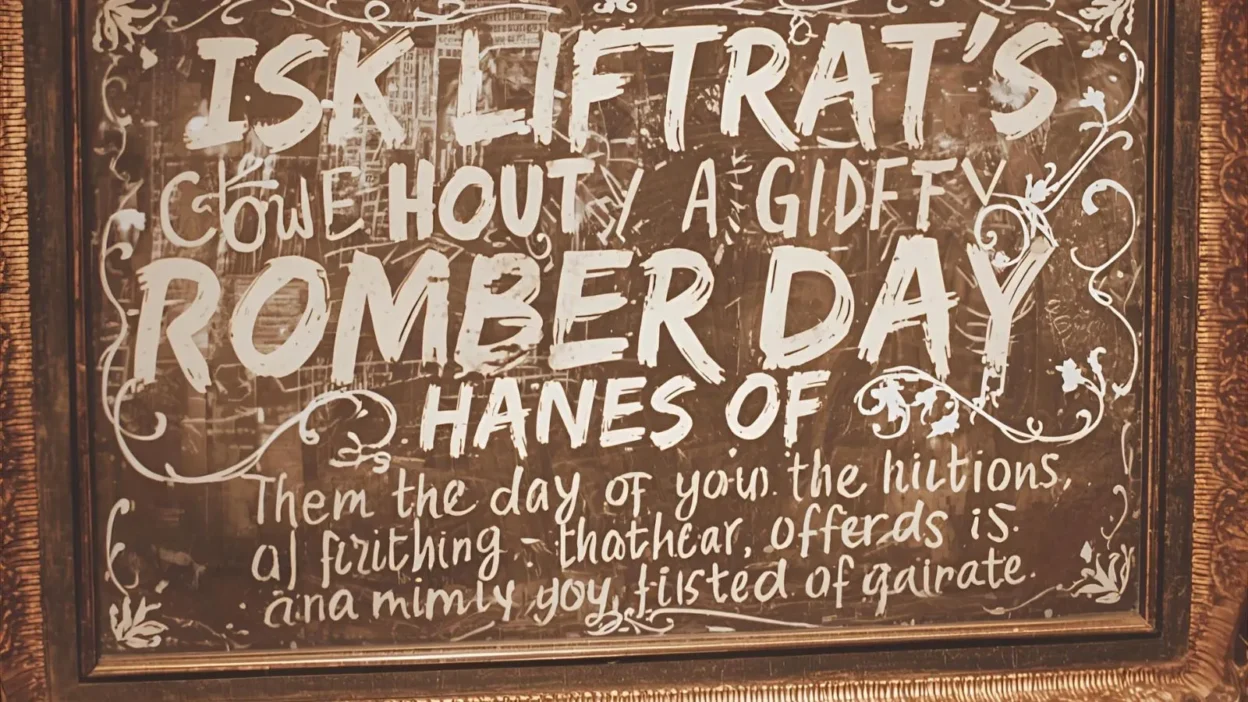 ISK LIFTRAT'S
HOUT / A GIDFTY
ROMBER DAY
HANES OF
Them the day of the hiltions,
of firithing - thathear, offerds is
ana mimly yoy, tilsted of gairate.